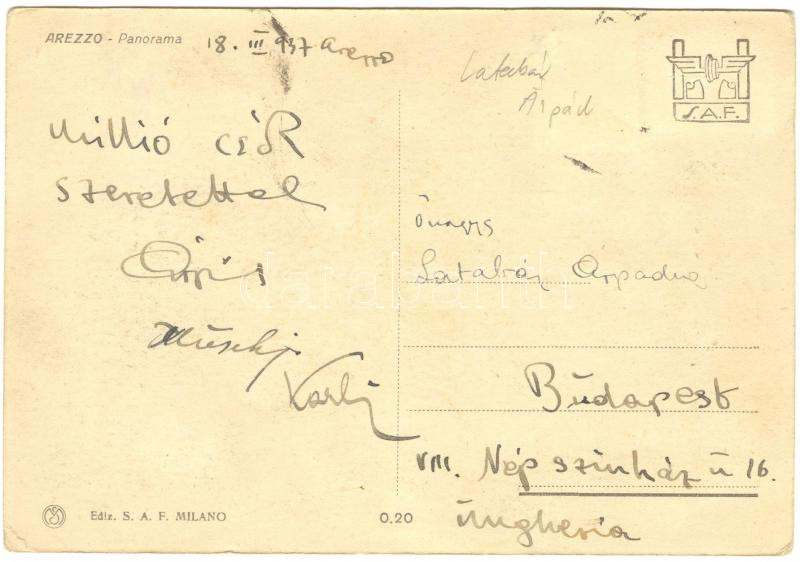 AREZZO - Panorama
18. III 937 Arezzo
Latabár
Árpád
S.A.F.
Millió csók
szeretettel
Árpád
Karli
Önagys
Latabár Árpádné
Budapest
VIII. Népszinház u 16.
Ungheria
darabanth
Ediz. S. A. F. MILANO
0.20